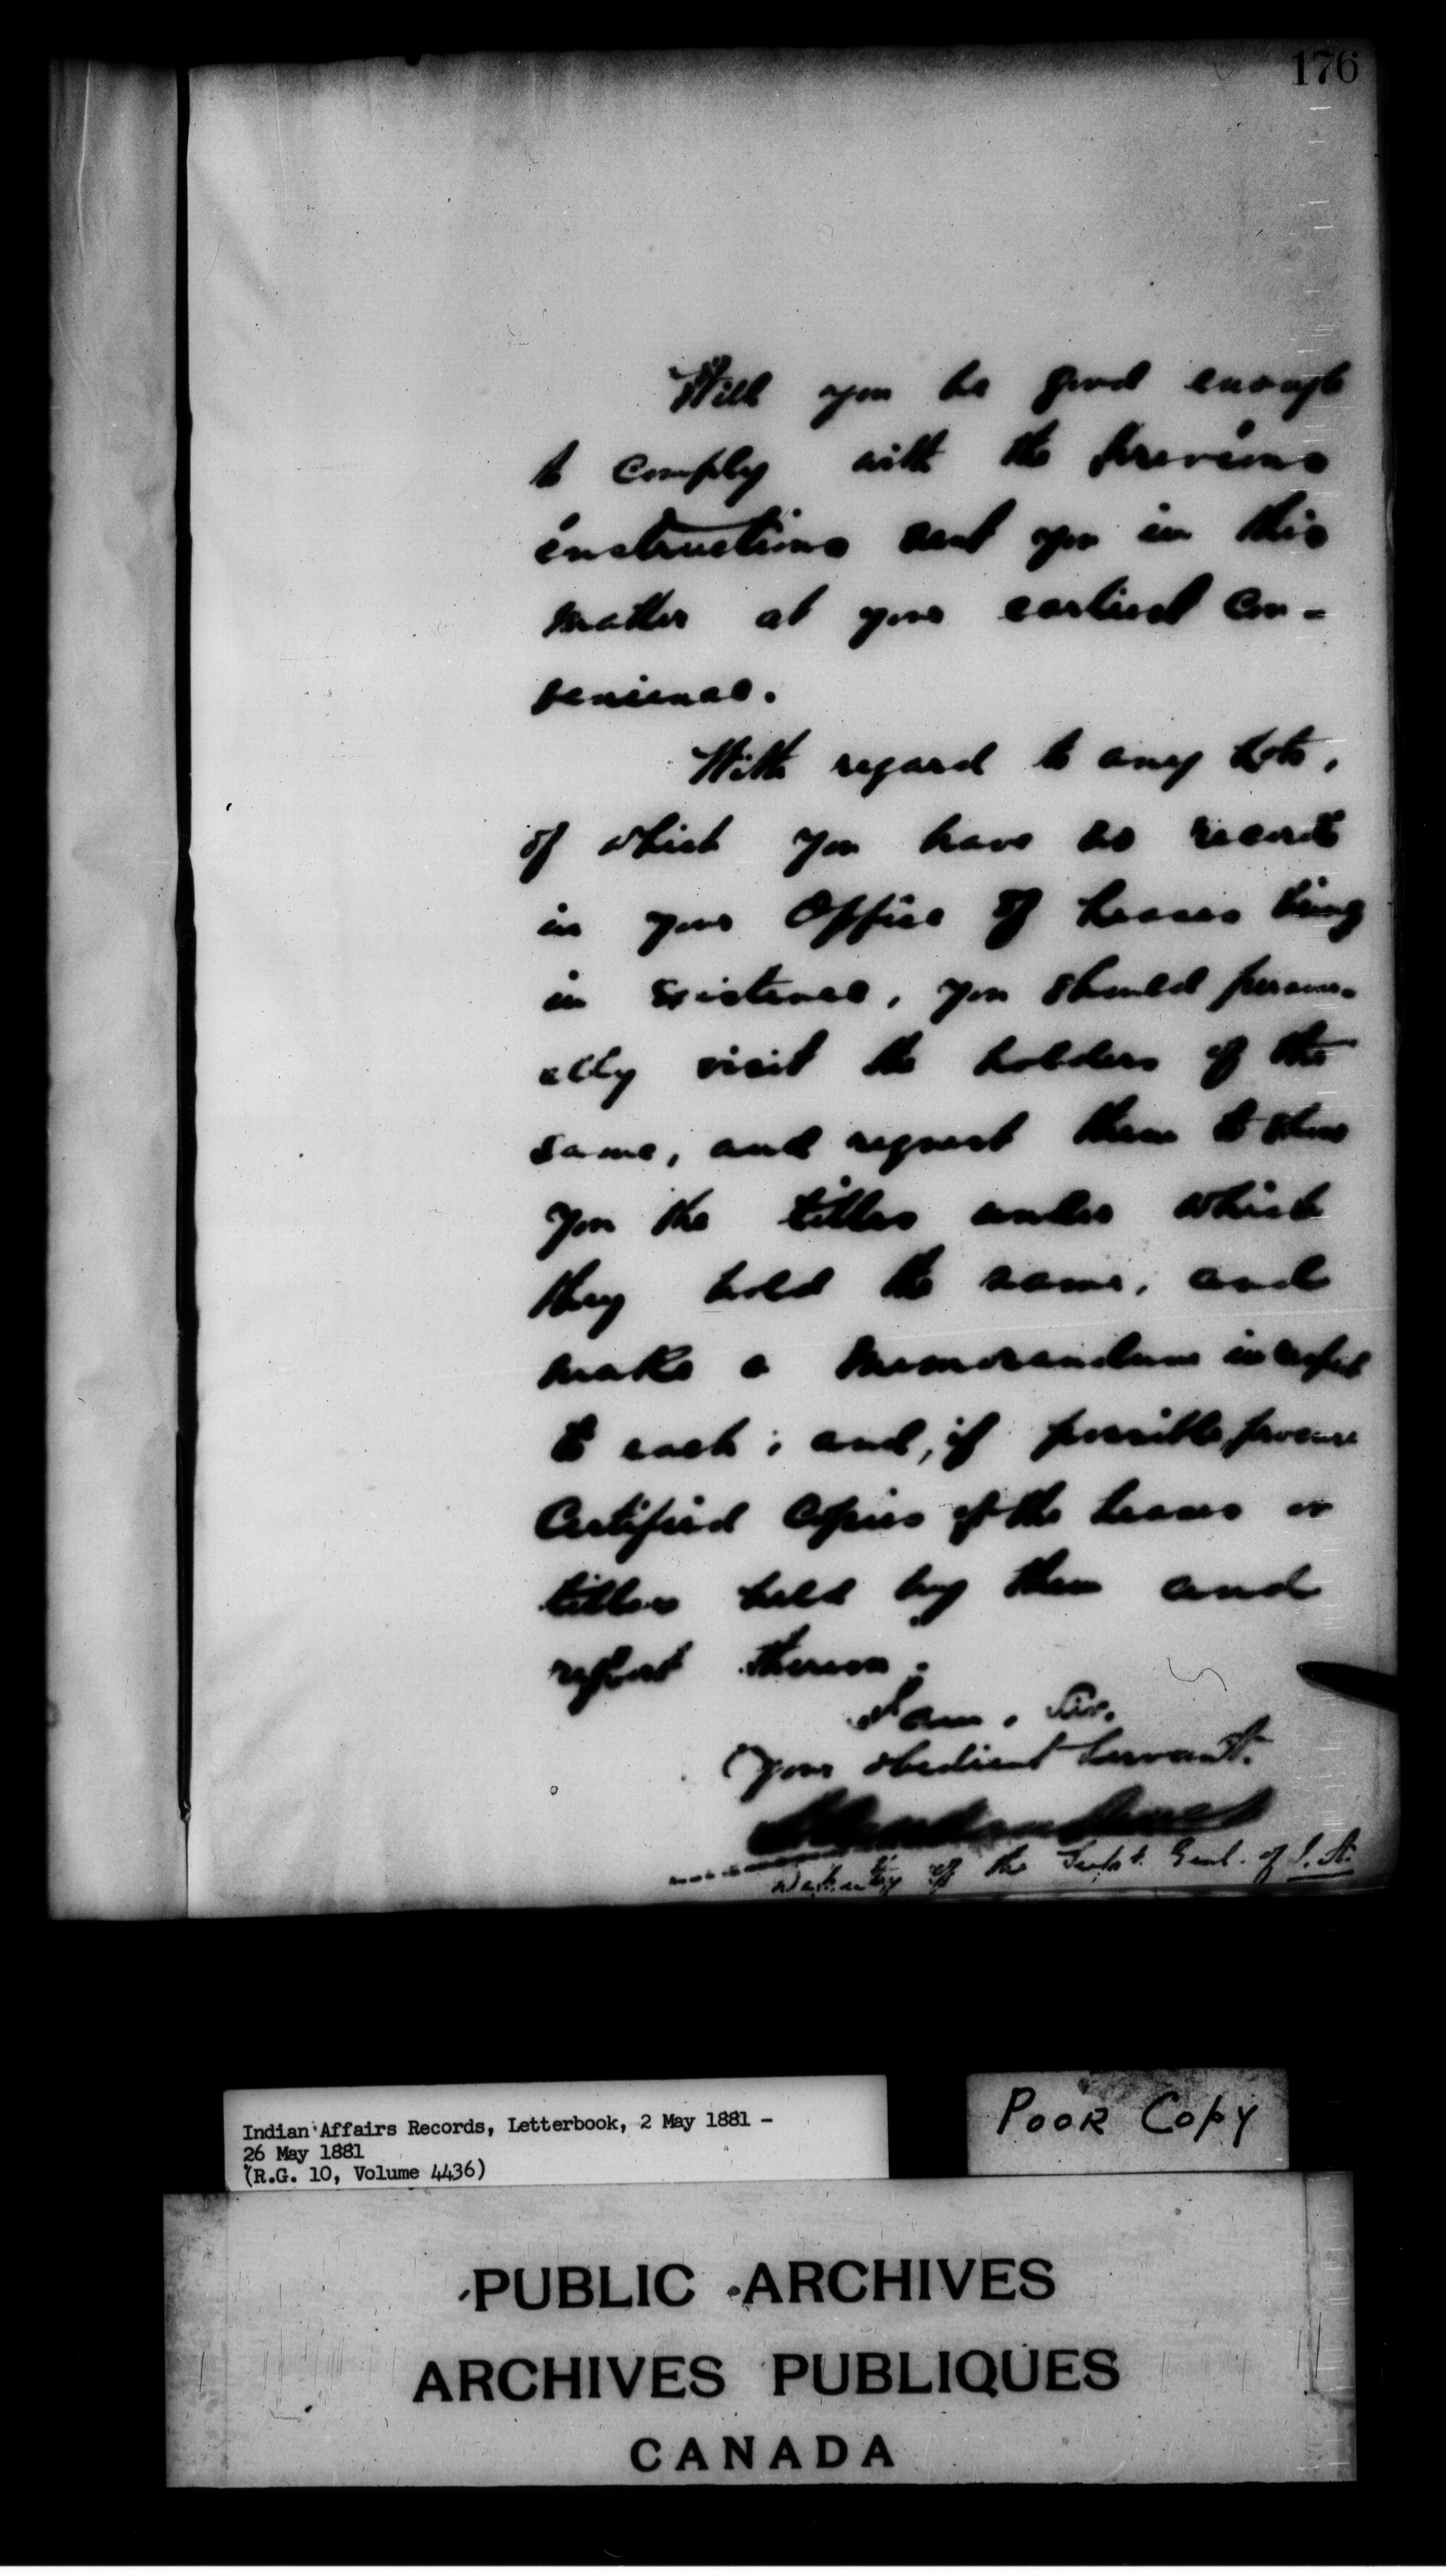 176
Will you be good enough
to comply with the previous
instructions sent you in this
matter at your earliest con-
venience.
With regard to any Lots,
of which you have no record
in your Office of Leases being
in existence, you should person-
ally visit the holders of the
same, and request them to show
you the titles under which
they hold the same, and
make a memorandum in respect
to each; and, if possible, procure
Certified Copies of the Leases or
titles held by them and
report thereon.
I am, Sir,
Your obedient Servant,
of the Supt. Genl. of I. A.
Indian Affairs Records, Letterbook, 2 May 1881 -
26 May 1881
(R.G. 10, Volume 4436)
POOR COPY
PUBLIC ARCHIVES
ARCHIVES PUBLIQUES
CANADA